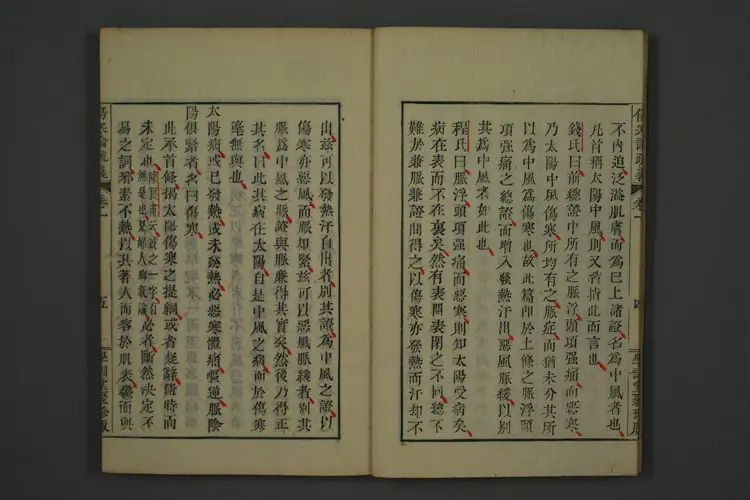 傷寒論疏義 卷一 四
不內迫泛溢肌膚而為巳上諸證名為中風者也
凡首稱太陽中風則又蓄指此而言也
錢氏曰前總證中所有之脈浮頭項强痛而惡寒
乃太陽中風傷寒所均有之脈症而猶未分其所
以為中風為傷寒也故此篇即於上條之脈浮頭
項强痛之總證而增入發熱汗出惡風脈緩以別
其為中風者如此也
程氏曰脈浮頭項强痛而惡寒則知太陽受病矣
病在表而不在裏矣然有表開表閉之不同總不
難於兼脈兼證間得之以傷寒亦發熱而汗却不
出茲可以發熱汗自出者別其證為中風之證以
傷寒亦惡風而脈却緊茲可以惡風脈緩者別其
脈為中風之脈證與脈兼得其實矣然後乃得正
其名曰此其病在太陽自是中風之病而於傷寒
毫無與也
太陽病或已發熱或未發熱必惡寒體痛嘔逆脈陰
陽俱緊者名曰傷寒
此承首條揭太陽傷寒之提綱或者疑辭蓋時尚
未定也必者斷然決定不
易之詞邪素不熱以其著人而鬱於肌表鬱而與
傷寒論疏義 卷一 五